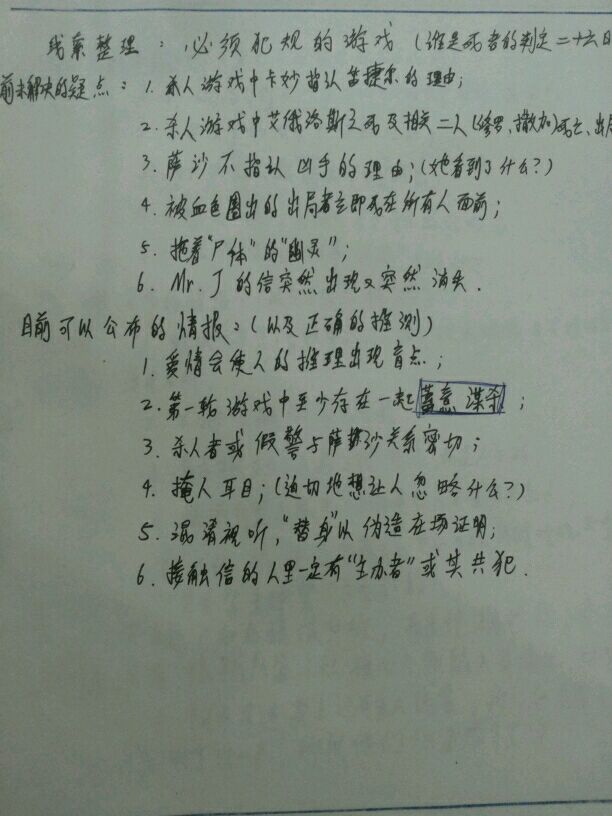 线索整理：必须犯规的游戏（谁是死者的判定二十六日
前未解决的疑点：1. 杀人游戏中卡妙指认笛捷尔的理由；
2. 杀人游戏中艾俄洛斯之死及相关二人（修罗、撒加）死亡、出局
3. 萨沙不指认凶手的理由；（她看到了什么？）
4. 被血色圈出的出局者立即死在所有人面前；
5. 拖着“尸体”的“幽灵”；
6. Mr. J 的信突然出现又突然消失.
目前可以公布的情报：（以及正确的推测）
1. 爱情会使人的推理出现盲点；
2. 第一轮游戏中至少存在一起蓄意谋杀；
3. 杀人者或假警与萨沙关系密切；
4. 掩人耳目；（迫切地想让人忽略什么？）
5. 混淆视听，“替身”以伪造在场证明；
6. 接触信的人里一定有“主办者”或其共犯.